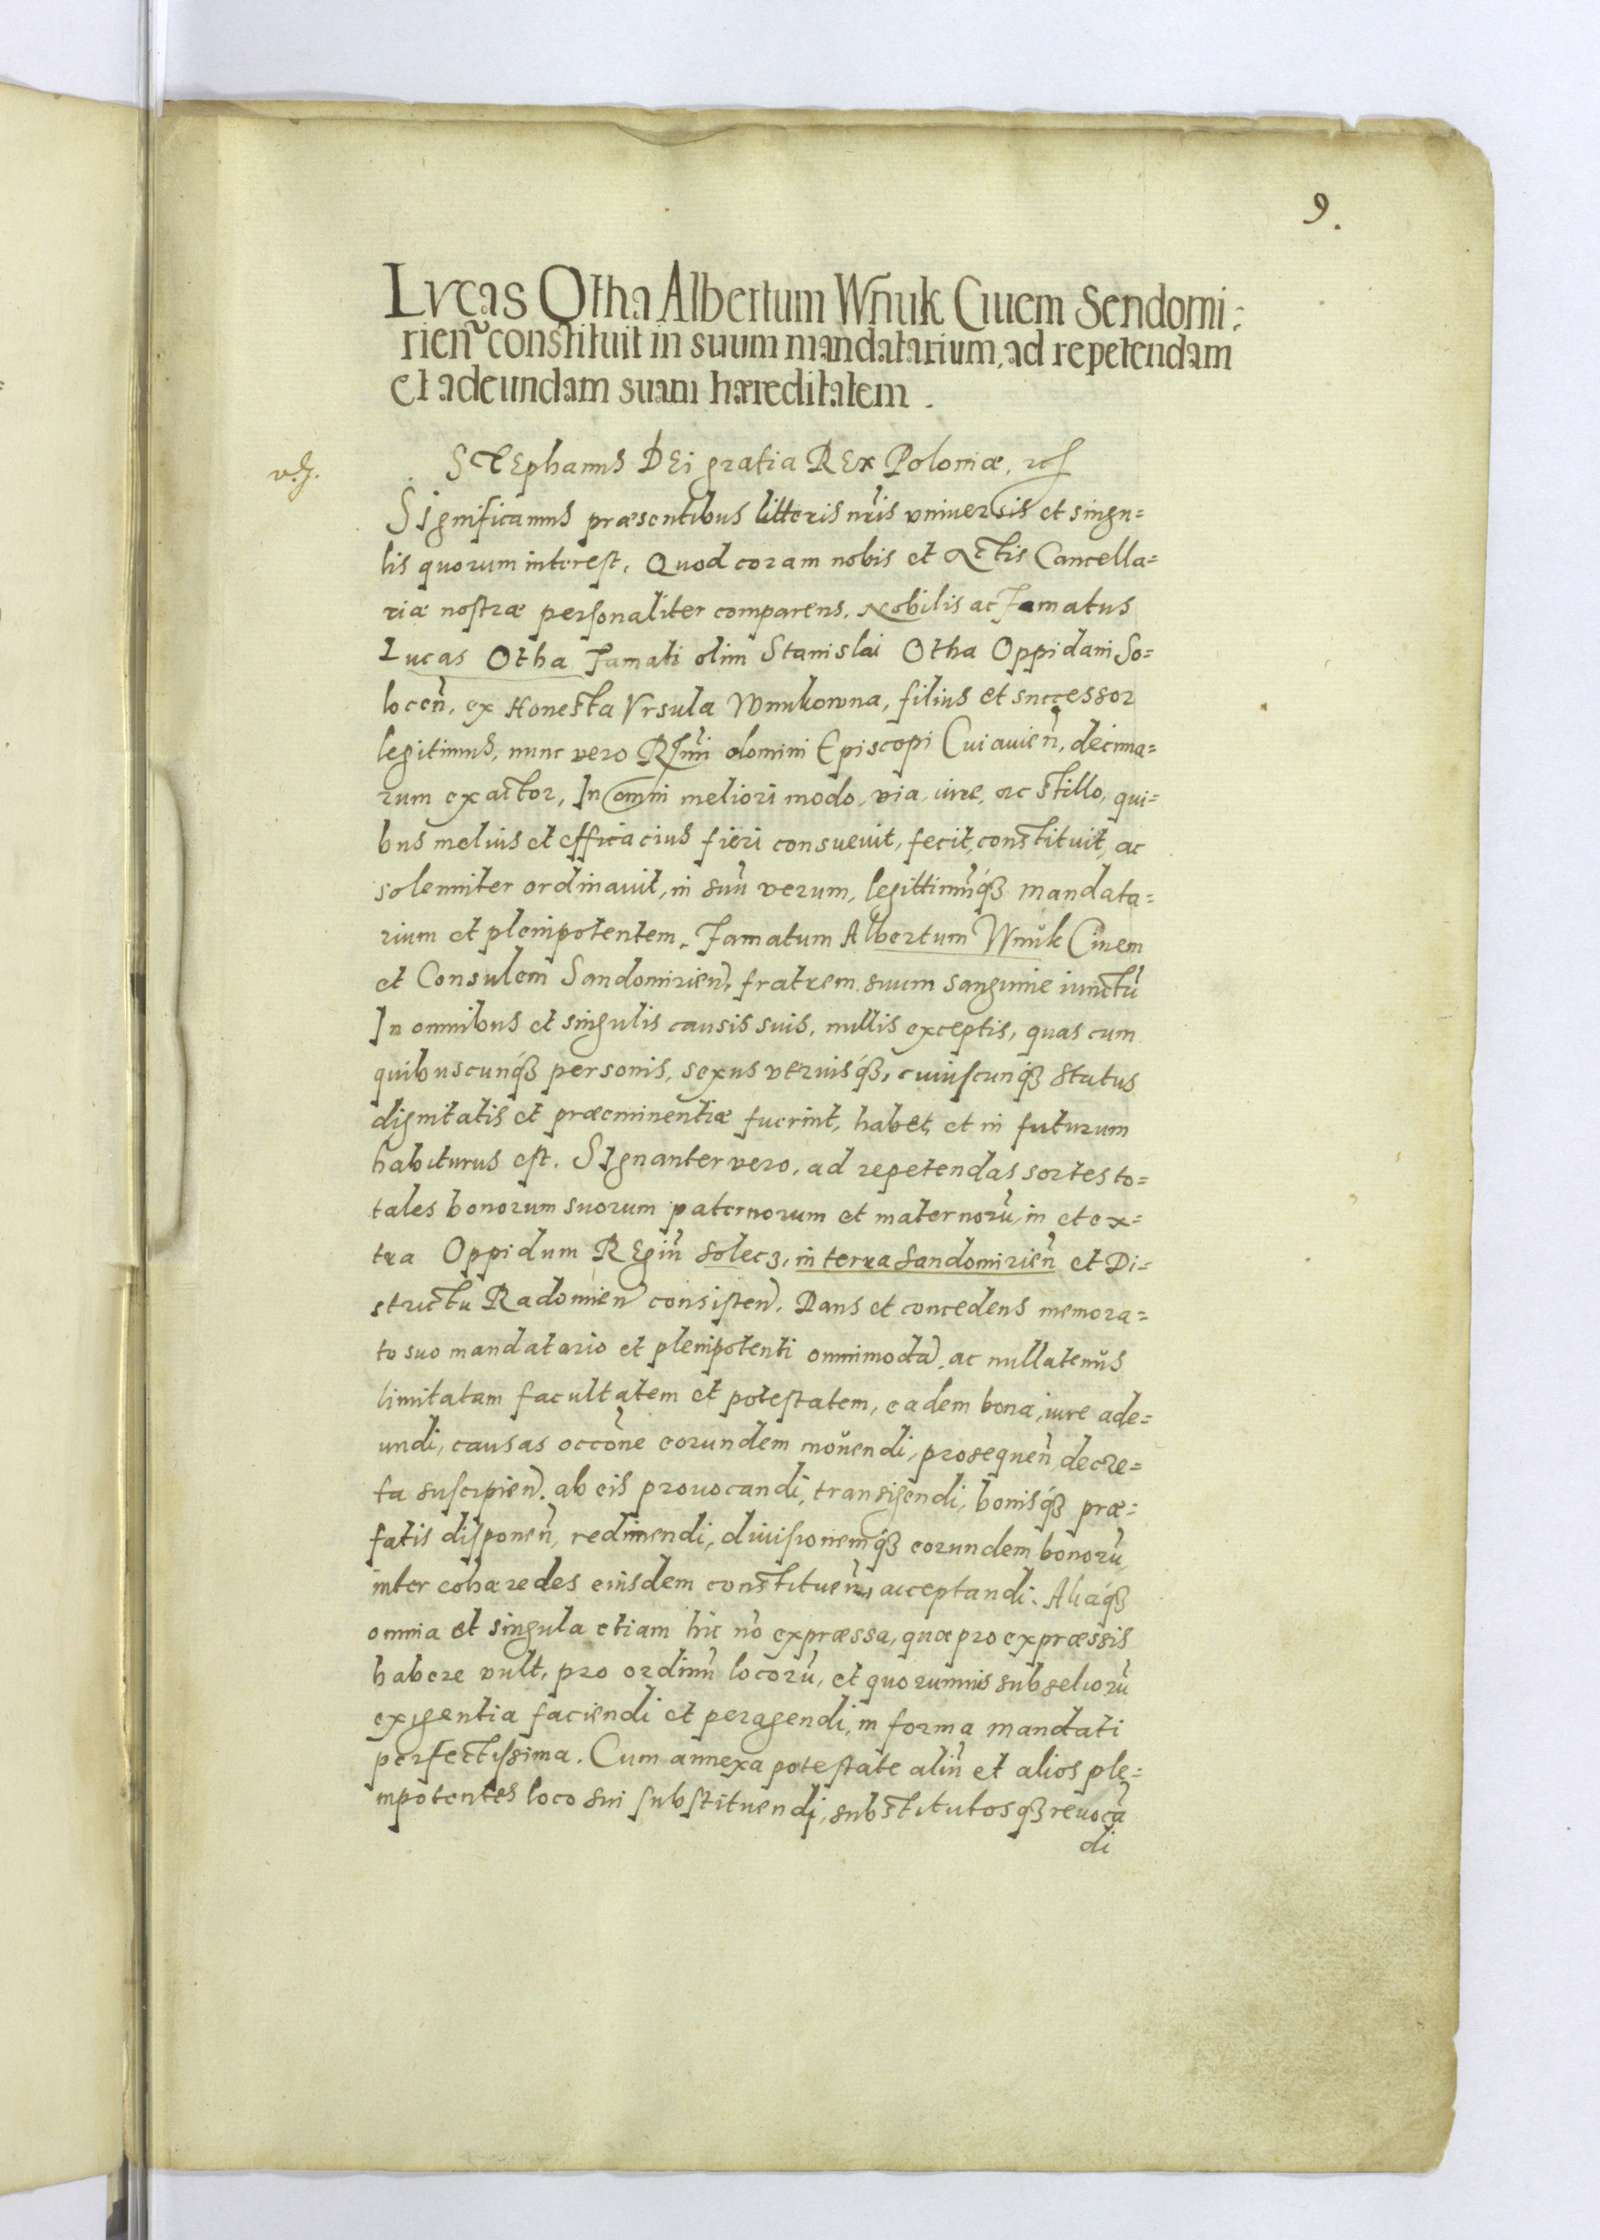 9.
Lvcas Otha Albertum Wnuk Ciuem Sendomi:
rien̄ constituit in suum mandatarium, ad repetendam
et adeundam suam hæreditatem.
STEphanus DEi gratia REx Poloniæ,
SIgnificamus præsentibus litteris nr̄is vniuersis et singu=
lis quorum interest, Quod coram nobis et Actis Cancella=
riæ nostræ personaliter comparens, Nobilis ac Famatus
Lucas Otha Famati olim Stanislai Otha Oppidani So=
locen̄, ex Honesta Vrsula Wnukowna, filius et successor
legitimus, nunc vero Rss̄mi domini Episcopi Cuiauien̄, decima=
rum exactor, In omni meliori modo, via, iure, ac stillo, qui=
bus melius et efficacius fieri consueuit, fecit, constituit, ac
solenniter ordinauit, in suū verum, legittimūq́ꝫ mandata=
rium et plenipotentem, Famatum Albertum Wnŭk Ciuem
et Consulem Sandomirien̄, fratrem suum sanguine iunctū
In omnibus et singulis causis suis, nullis exceptis, quas cum
quibuscunq́ꝫ personis, sexus vtriusq́ꝫ, cuiuscunq́ꝫ status
dignitatis et præeminentiæ fuerint, habet, et in futurum
habiturus est. SIgnanter vero, ad repetendas sortes to=
tales bonorum suorum paternorum et maternorū, in et ex=
tra Oppidum REgiū Solecz, in terra Sandomirien̄ et Di=
strictu Radomien̄ consisten̄. Dans et concedens memora=
to suo mandatario et plenipotenti omnimodā, ac nullatenŭs
limitatam facultatem et potestatem, eadem bona, iure ade=
undi, causas occōne eorundem mouendi, prosequen̄, decre=
ta suscipien̄, ab eis prouocandi, transigendi, bonisq́ꝫ præ=
fatis disponen̄, redimendi, diuisionemq́ꝫ eorundem bonorū,
inter cohæredes eiusdem constituen̄, acceptandi. Aliaq́ꝫ
omnia et singula etiam hic nō expræssa, quæ pro expræssis
habere vult, pro ordinū locorū, et quorumuis subseliorū
exigentia faciendi et peragendi, in forma mandati
perfectissima. Cum annexa potestate aliū et alios ple=
nipotentes loco sui substituendi, substitutosqꝫ reuocā
di